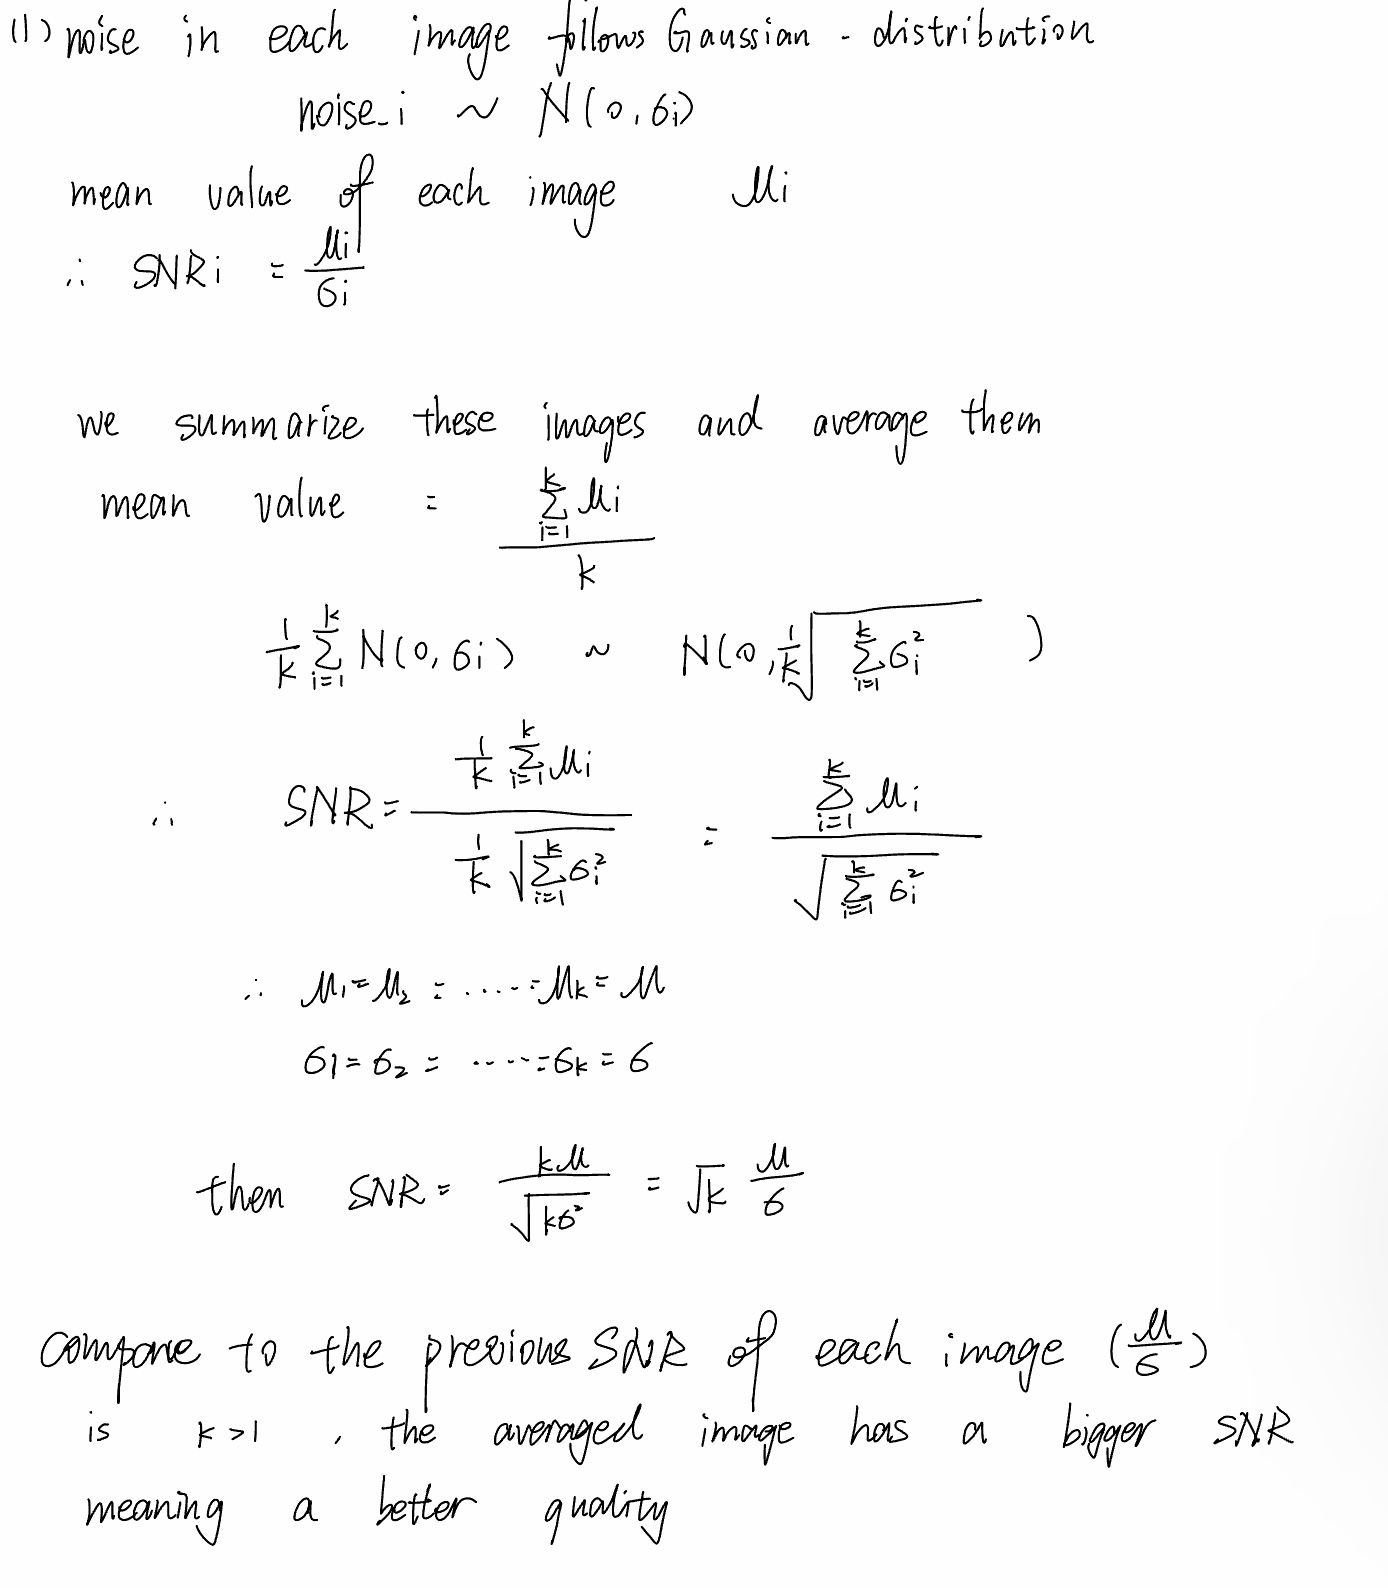 (1) noise in each image follows Gaussian - distribution
noise_i ~ N(0, σi)
mean value of each image μi
∴ SNRi = μi / σi
we summarize these images and average them
mean value = ∑_{i=1}^{k} μi / k
1/k ∑_{i=1}^{k} N(0, σi) ~ N(0, 1/k √(∑_{i=1}^{k} σi²) )
∴ SNR = (1/k ∑_{i=1}^{k} μi) / (1/k √(∑_{i=1}^{k} σi²)) = (∑_{i=1}^{k} μi) / √(∑_{i=1}^{k} σi²)
∴ μ1 = μ2 = ..... = μk = μ
σ1 = σ2 = ..... = σk = σ
then SNR = kμ / √(kσ²) = √k μ/σ
compare to the previous SNR of each image (μ/σ)
is k>1 , the averaged image has a bigger SNR
meaning a better quality